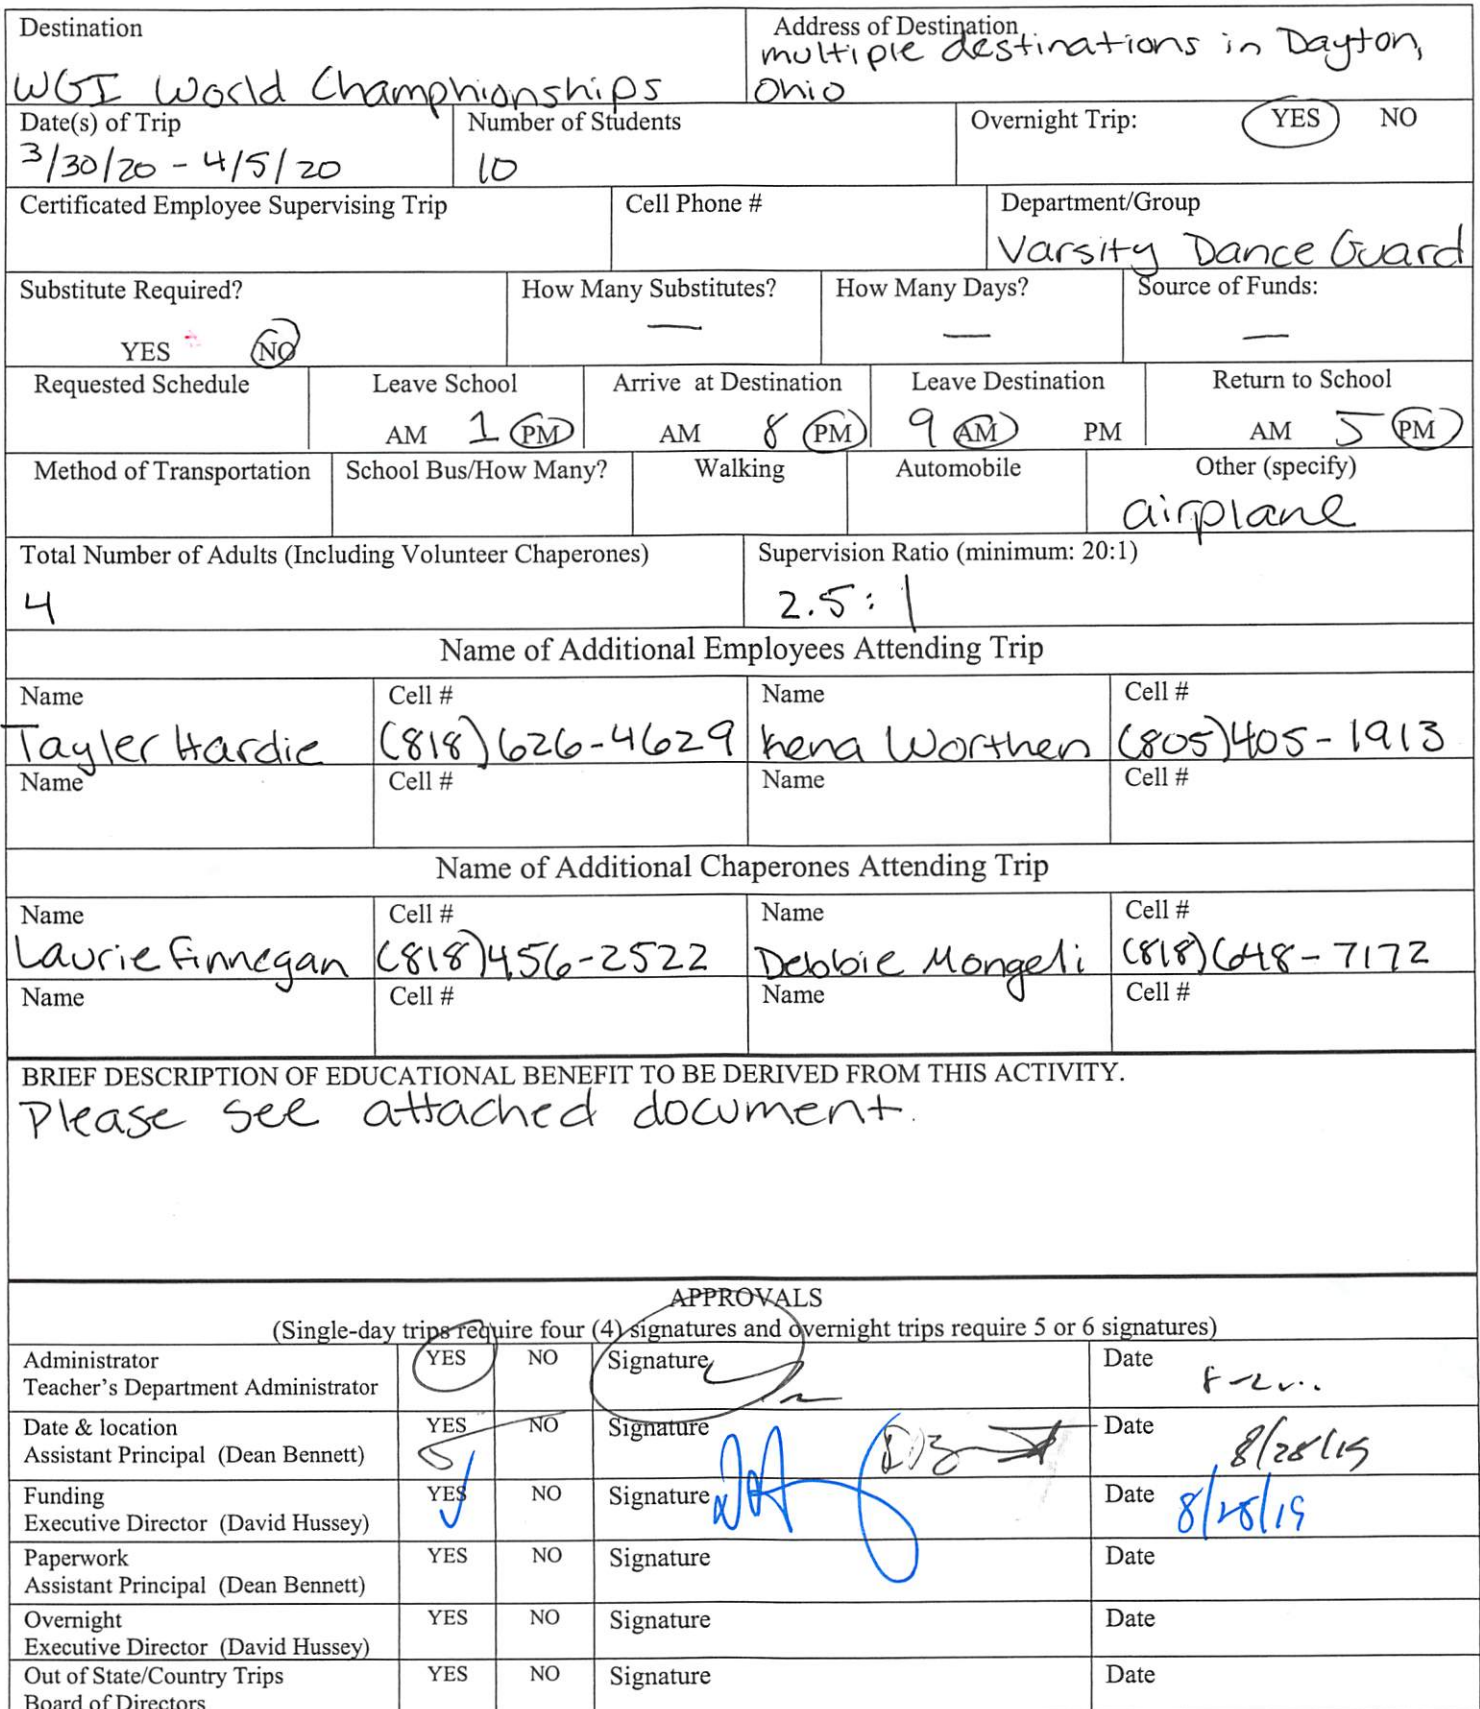 Destination
WGI World Champhionships
Address of Destination
multiple destinations in Dayton,
Ohio
Date(s) of Trip
3/30/20 - 4/5/20
Number of Students
10
Overnight Trip: YES NO
Certificated Employee Supervising Trip
Cell Phone #
Department/Group
Varsity Dance Guard
Substitute Required?
YES NO
How Many Substitutes?
—
How Many Days?
—
Source of Funds:
—
Requested Schedule
Leave School
AM 1 PM
Arrive at Destination
AM 8 PM
Leave Destination
9 AM PM
Return to School
AM 5 PM
Method of Transportation
School Bus/How Many?
Walking
Automobile
Other (specify)
airplane
Total Number of Adults (Including Volunteer Chaperones)
4
Supervision Ratio (minimum: 20:1)
2.5:1
Name of Additional Employees Attending Trip
Name Cell # Name Cell #
Tayler Hardie (818)626-4629 Kena Worthen (805)405-1913
Name Cell # Name Cell #
Name of Additional Chaperones Attending Trip
Name Cell # Name Cell #
Laurie Finnegan (818)456-2522 Debbie Mongeli (818)648-7172
Name Cell # Name Cell #
BRIEF DESCRIPTION OF EDUCATIONAL BENEFIT TO BE DERIVED FROM THIS ACTIVITY.
Please see attached document.
APPROVALS
(Single-day trips require four (4) signatures and overnight trips require 5 or 6 signatures)
Administrator YES NO Signature Date
Teacher's Department Administrator
Date & location YES NO Signature Date 8/28/19
Assistant Principal (Dean Bennett)
Funding YES NO Signature Date 8/28/19
Executive Director (David Hussey)
Paperwork YES NO Signature Date
Assistant Principal (Dean Bennett)
Overnight YES NO Signature Date
Executive Director (David Hussey)
Out of State/Country Trips YES NO Signature Date
Board of Directors